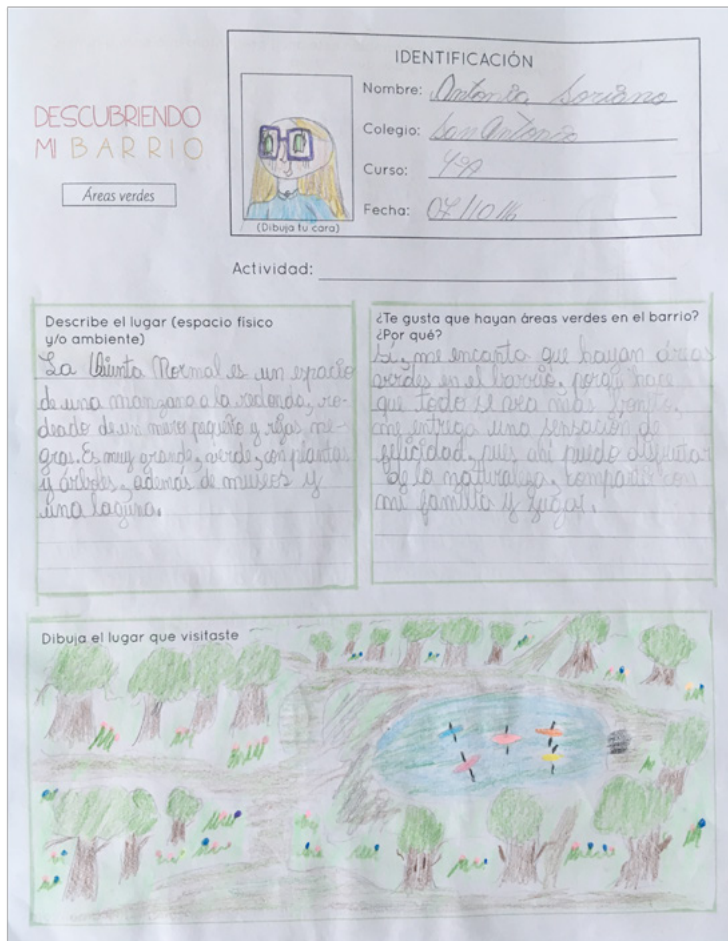 IDENTIFICACIÓN
Nombre: Antonia Soriano
Colegio: San Antonio
Curso: 4ºA
Fecha: 07/10/16
(Dibuja tu cara)
DESCUBRIENDO
MI BARRIO
Áreas verdes
Actividad:
Describe el lugar (espacio físico
y/o ambiente)
La Quinta Normal es un espacio
de una manzana a la redonda, ro-
deado de un muro pequeño y rejas ne-
gras. Es muy grande, verde, con plantas
y árboles, además de museos y
una laguna.
¿Te gusta que hayan áreas verdes en el barrio?
¿Por qué?
Si, me encanta que hayan áreas
verdes en el barrio, hace
que todo se vea más bonito,
me entrega una sensación de
felicidad, pues ahí puedo disfrutar
de la naturaleza, compartir con
mi familia y jugar.
Dibuja el lugar que visitaste